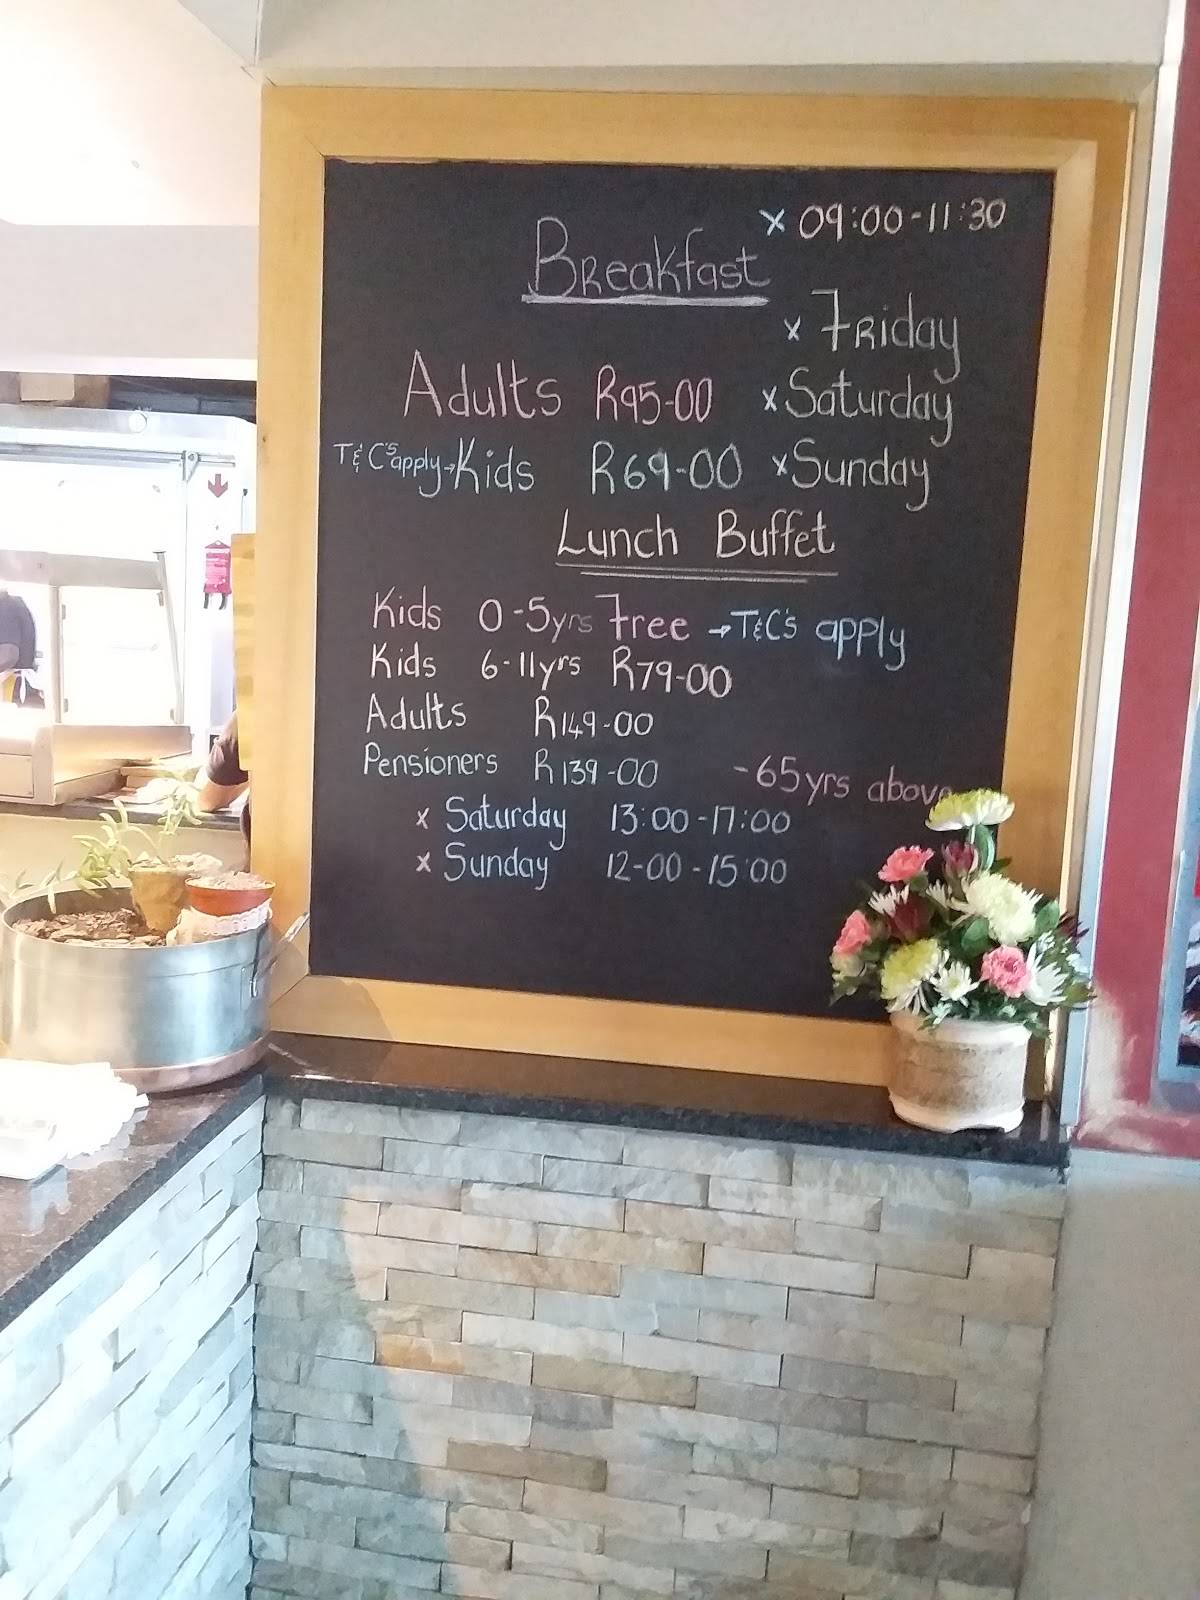 x 09:00-11:30
Breakfast
x Friday
Adults R95-00 x Saturday
T&C's apply→Kids R69-00 x Sunday
Lunch Buffet
Kids 0-5yrs Free →T&C's apply
Kids 6-11yrs R79-00
Adults R149-00
Pensioners R139-00 -65yrs above
x Saturday 13:00-17:00
x Sunday 12-00-15:00